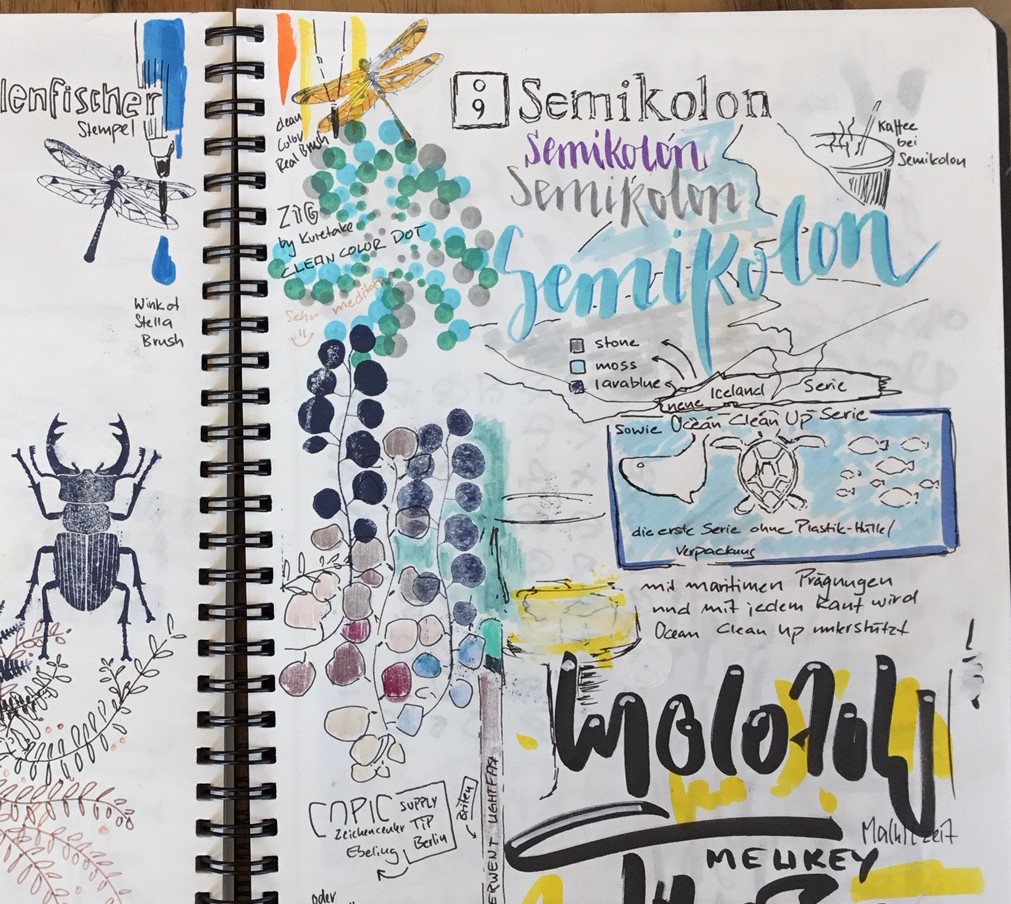 lenfischer
Stempel
Wink of
Stella
Brush
clean
Color
Real Brush
ZIG
by Kuretake
CLEAN COLOR DOT
Sehr
9
Semikolon
Semikolon
Semikolon
Semikolon
Kaffee
bei
Semikolon
stone
moss
lavablue
neue Iceland Serie
sowie Ocean Clean Up Serie
die erste Serie ohne Plastik-Hülle/
Verpackung
mit maritimen Prägungen
und mit jedem Kauf wird
Ocean Clean Up unterstützt
COPIC SUPPLY
Zeichencenter TIP
Ebeling Berlin
ERWENT LIGHTFAX
molotow
Ma(h)lzeit
MEUKEY
oder